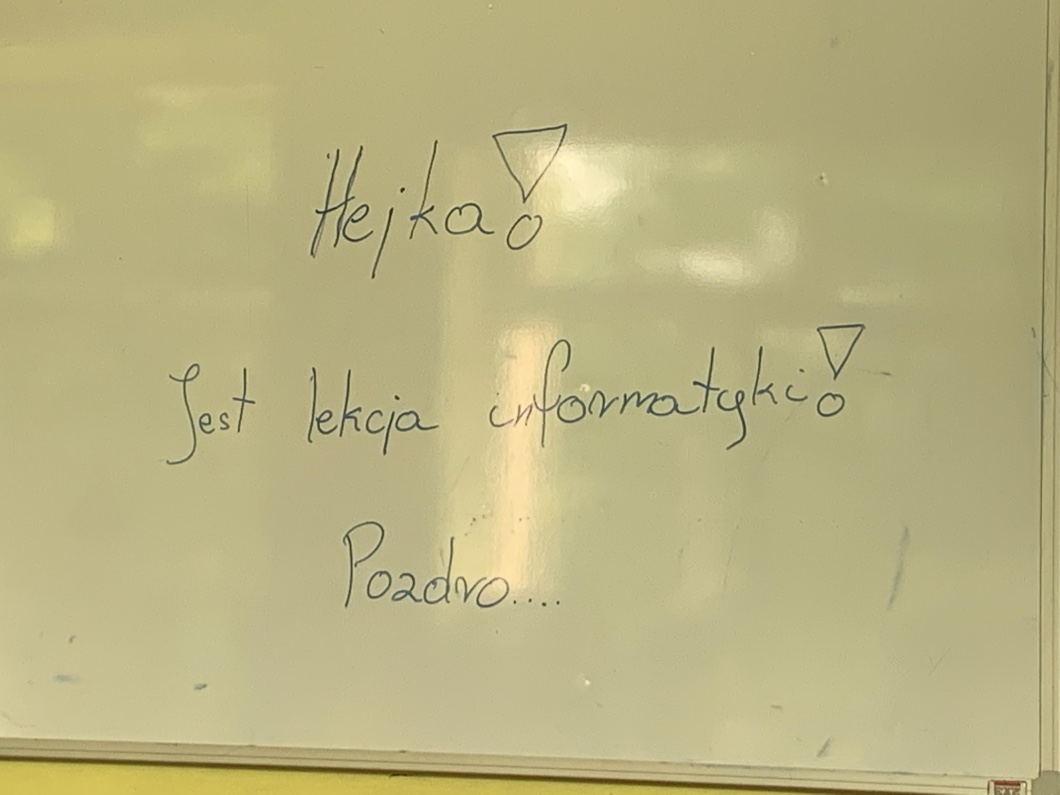 Hejka!
Jest lekcja informatyki!
Pozdro....